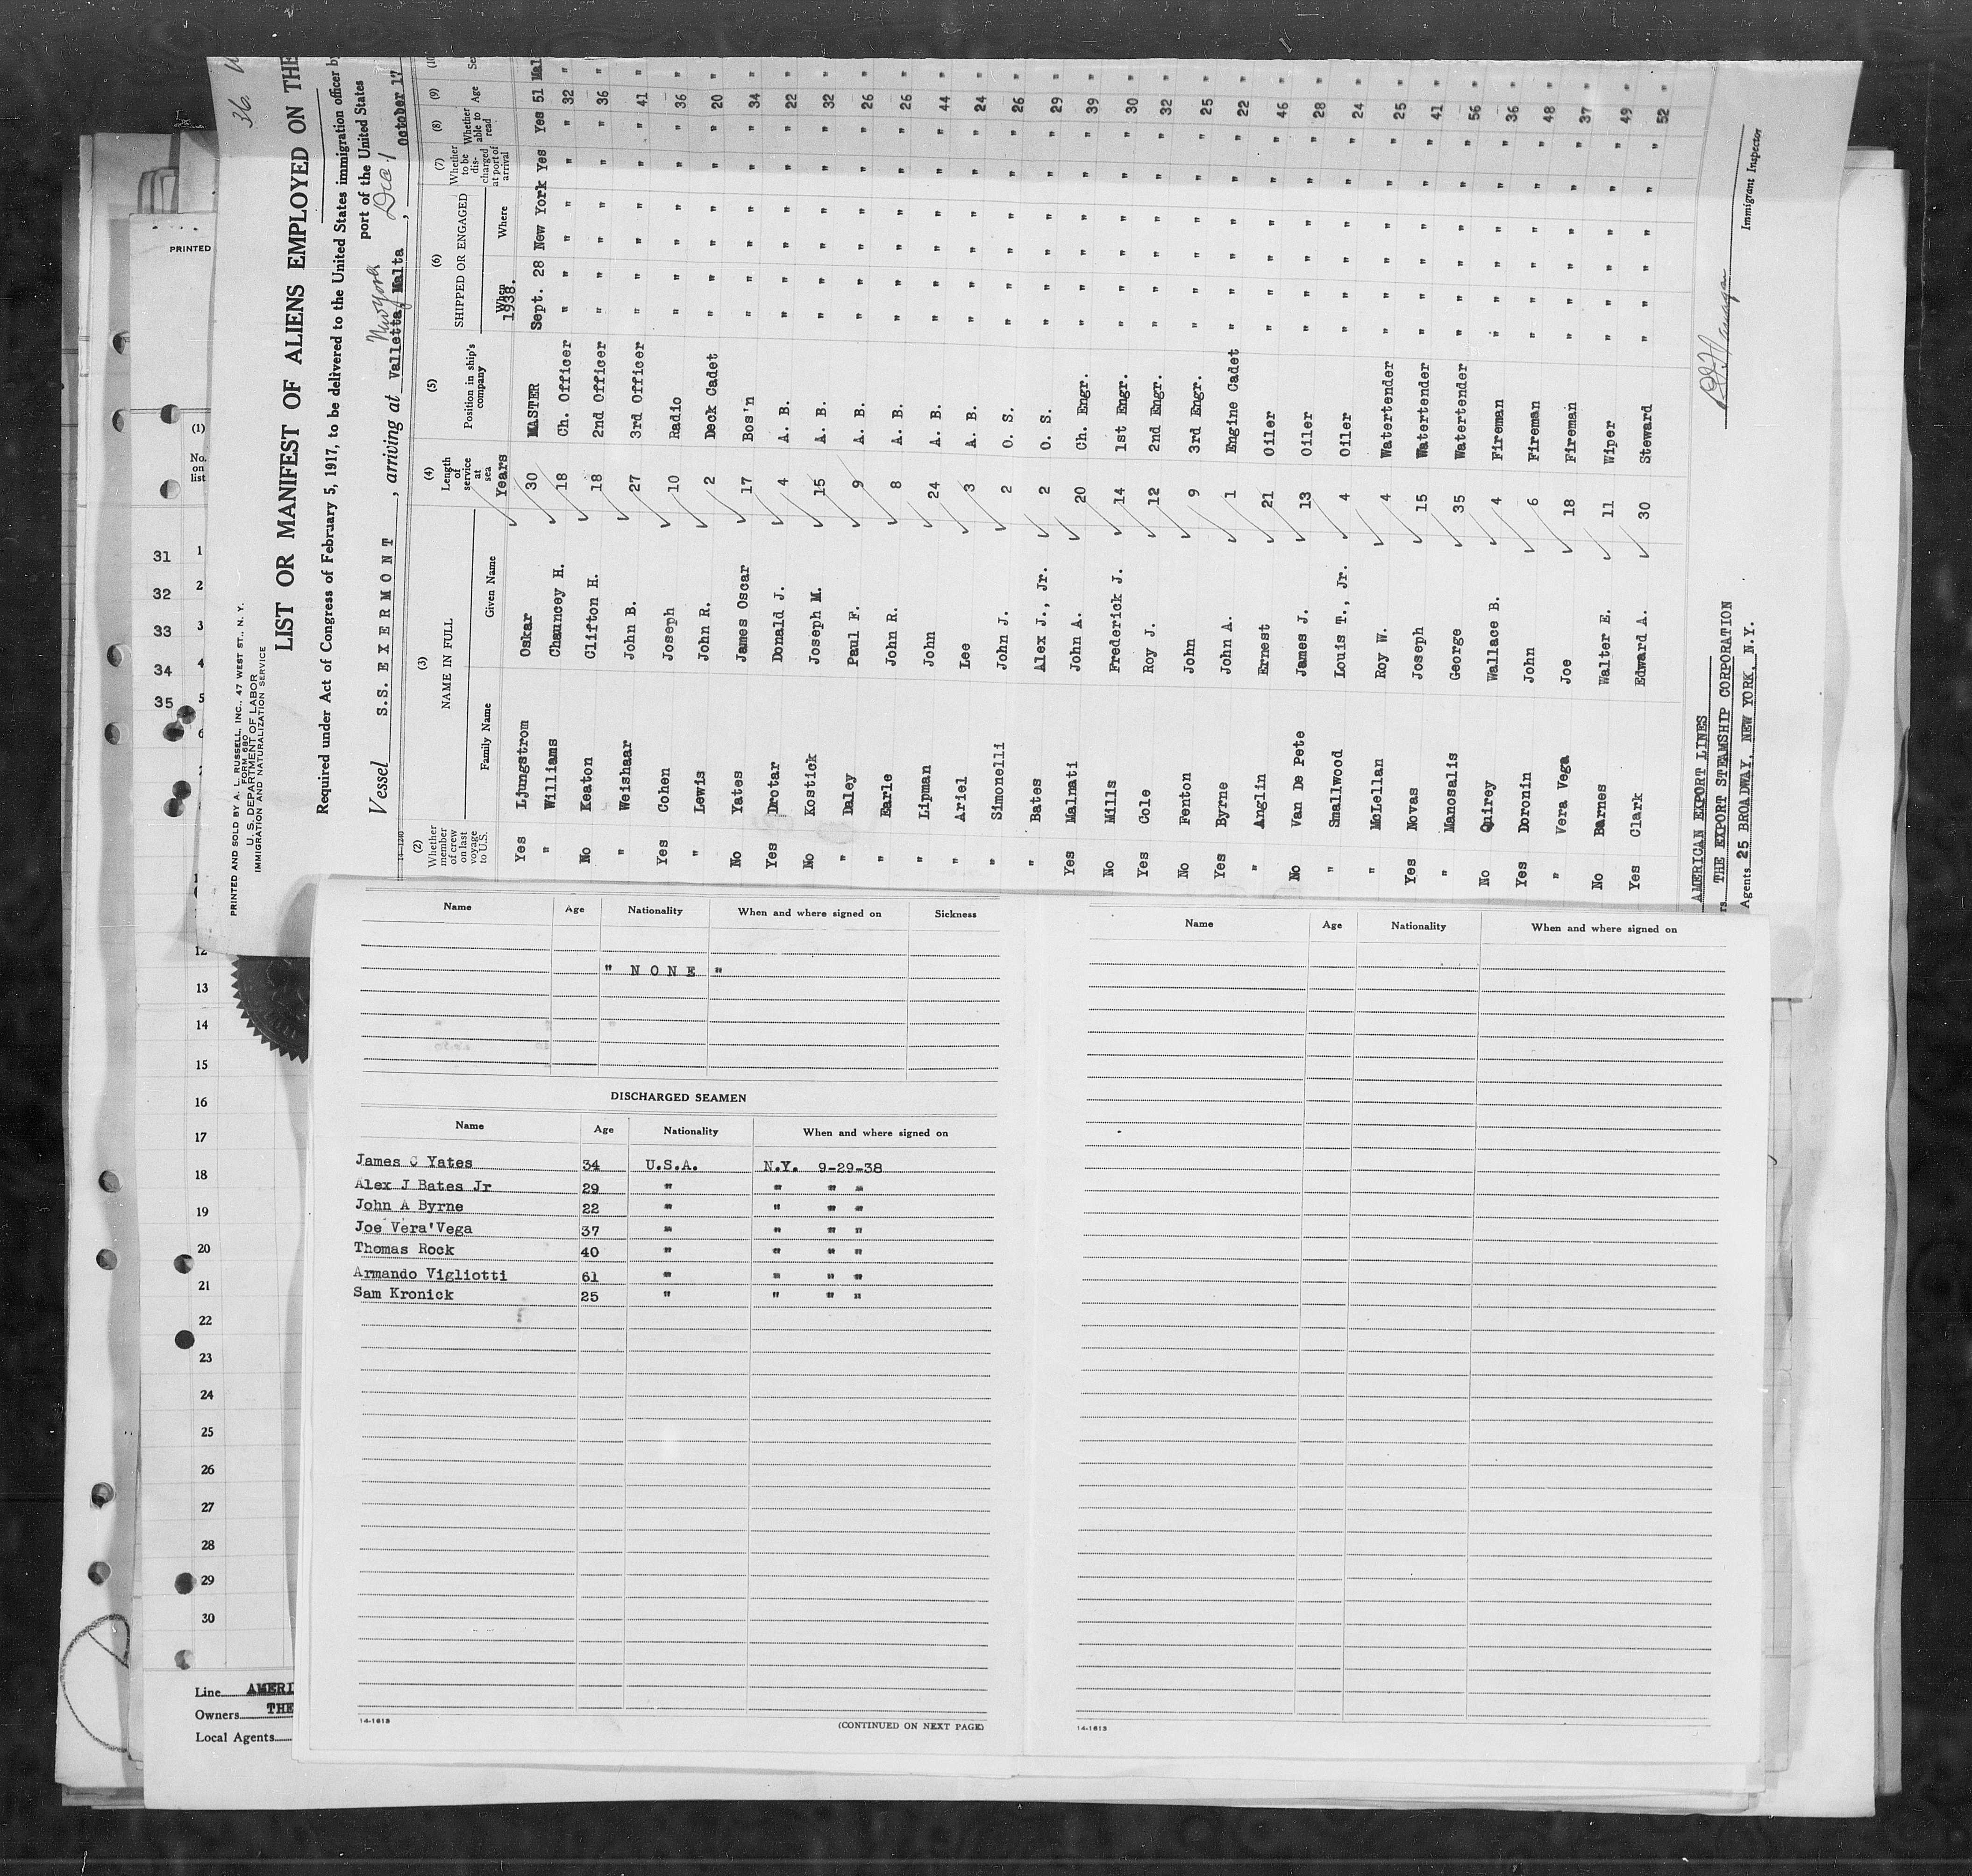 36
PRINTED AND SOLD BY A. L. RUSSELL, INC., 47 WEST ST., N. Y.
FORM 680
U. S. DEPARTMENT OF LABOR
IMMIGRATION AND NATURALIZATION SERVICE
LIST OR MANIFEST OF ALIENS EMPLOYED ON THE
Required under Act of Congress of February 5, 1917, to be delivered to the United States immigration officer by
port of the United States
New York Dec 1
Vessel S.S. EXERMONT, arriving at Valletta, Malta, October 17
14-1240
(2) (3) (4) (5) (6) (7) (8) (9) (10
Whether member of crew on last voyage to U.S. NAME IN FULL Family Name Given Name Length of service at sea Position in ship's company SHIPPED OR ENGAGED When Where Whether to be discharged at port of arrival Whether able to read Age Se
Years 1938.
Yes Ljungstrom Oskar 30 MASTER Sept. 28 New York Yes Yes 51 Mal
" Williams Chauncey H. 18 Ch. Officer " " " " " " 32 "
No Keaton Clifton H. 18 2nd Officer " " " " " " 36 "
" Weishaar John B. 27 3rd Officer " " " " " " 41 "
Yes Cohen Joseph 10 Radio " " " " " " 36 "
" Lewis John R. 2 Deck Cadet " " " " " " 20 "
No Yates James Oscar 17 Bos'n " " " " " " 34 "
Yes Drotar Donald J. 4 A. B. " " " " " " 22 "
No Kostick Joseph M. 15 A. B. " " " " " " 32 "
" Daley Paul F. 9 A. B. " " " " " " 26 "
" Earle John R. 8 A. B. " " " " " " 26 "
" Lipman John 24 A. B. " " " " " " 44 "
" Ariel Lee 3 A. B. " " " " " " 24 "
" Simonelli John J. 2 O. S. " " " " " " 26 "
" Bates Alex J., Jr. 2 O. S. " " " " " " 29 "
Yes Malnati John A. 20 Ch. Engr. " " " " " " 39 "
No Mills Frederick J. 14 1st Engr. " " " " " " 30 "
Yes Cole Roy J. 12 2nd Engr. " " " " " " 32 "
No Fenton John 9 3rd Engr. " " " " " " 25 "
Yes Byrne John A. 1 Engine Cadet " " " " " " 22 "
" Anglin Ernest 21 Oiler " " " " " " 46 "
No Van De Pete James J. 13 Oiler " " " " " " 28 "
" Smallwood Louis T., Jr. 4 Oiler " " " " " " 24 "
" McLellan Roy W. 4 Watertender " " " " " " 25 "
Yes Novas Joseph 15 Watertender " " " " " " 41 "
" Manosalis George 35 Watertender " " " " " " 56 "
No Quirey Wallace B. 4 Fireman " " " " " " 36 "
Yes Doronin John 6 Fireman " " " " " " 48 "
" Vera Vega Joe 18 Fireman " " " " " " 37 "
No Barnes Walter E. 11 Wiper " " " " " " 49 "
Yes Clark Edward A. 30 Steward " " " " " " 52 "
AMERICAN EXPORT LINES
rs THE EXPORT STEAMSHIP CORPORATION
Agents 25 BROADWAY, NEW YORK, N.Y.
Immigrant Inspector
PRINTED
(1)
No. on list
31 1
32 2
33 3
34 4
35 5
12
13
14
15
16
17
18
19
20
21
22
23
24
25
26
27
28
29
30
Line AMERI
Owners THE
Local Agents
Name Age Nationality When and where signed on Sickness
" NONE "
DISCHARGED SEAMEN
Name Age Nationality When and where signed on
James C Yates 34 U.S.A. N.Y. 9-29-38
Alex J Bates Jr 29 " " " "
John A Byrne 22 " " " "
Joe Vera'Vega 37 " " " "
Thomas Rock 40 " " " "
Armando Vigliotti 61 " " " "
Sam Kronick 25 " " " "
14-1613 (CONTINUED ON NEXT PAGE)
Name Age Nationality When and where signed on
14-1613